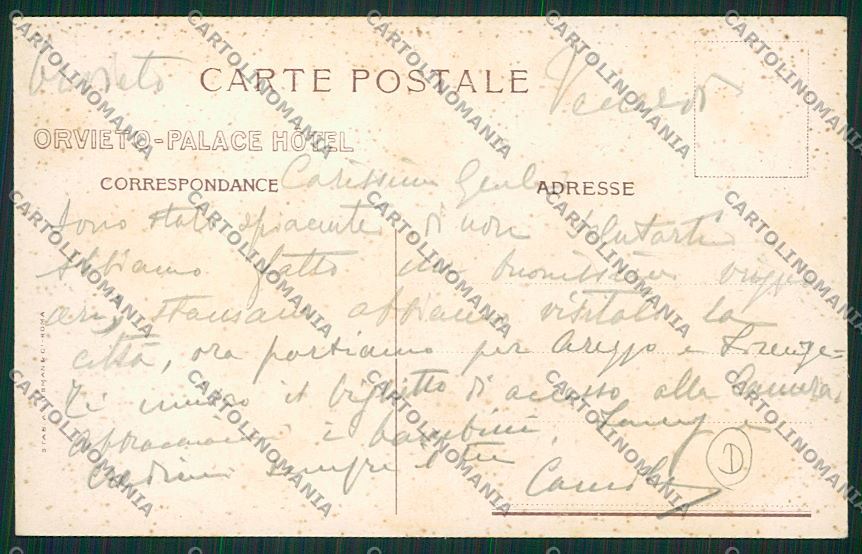 Orvieto
CARTE POSTALE
Venerdì
ORVIETO-PALACE HÔTEL
CORRESPONDANCE
ADRESSE
Carissimo
Sono stato spiacente di non salutarti
Abbiamo fatto un buonissimo viaggio
ieri, stamani abbiamo visitato la
città, ora partiamo per Arezzo e Firenze=
Ti invio il biglietto di accesso alla Camera.
i bambini, Fanny e
credimi sempre il tuo
Camillo
D
CARTOLINOMANIA